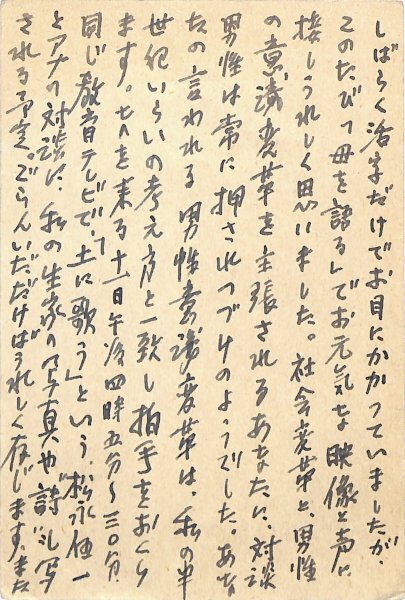 しばらく活字だけでお目にかかっていましたが、
このたび「母を語る」でお元気な映像と声に
接しうれしく思いました。社会変革と、男性
の意識変革を主張されるあなたに、対談
男性は常に押されつづけのようでした。あな
たの言われる男性意識変革は、私の半
世紀いらいの考え方と一致し拍手をおくり
ます。さて来る十一日午後四時五分〜三〇分、
同じ教育テレビで、「土に歌う」という、松永伍一
とアナの対談に、私の生家の写真や詩が写
される予定。ごらんいただければうれしく存じます。また